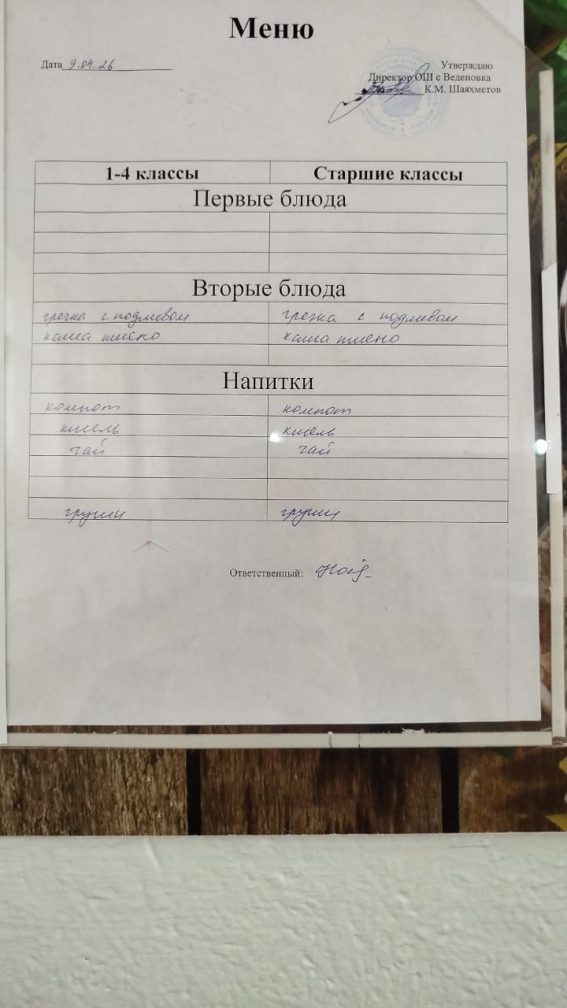 Меню
Дата 9.04.26
Утверждаю
Директор ОШ с Веденовка
К.М. Шаяхметов
1-4 классы Старшие классы
Первые блюда
Вторые блюда
гречка с подливом гречка с подливом
каша пшено каша пшено
Напитки
компот компот
кисель кисель
чай чай
груши груши
Ответственный: